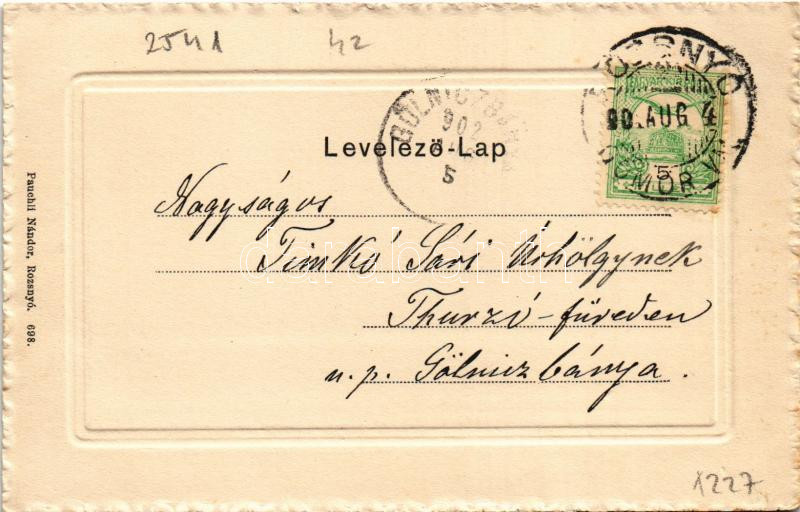 2541
42
ROZSNYÓ
90.AUG 4
GÖMÖR VM
MAGYAR
5
GÖLNICZBÁNYA
902
5
Levelező-Lap
Nagyságos
Timkó Sári Úrhölgynek
Thurzó-füreden
u.p. Gölniczbánya.
Pauchli Nándor, Rozsnyó. 698.
darabanth
1227